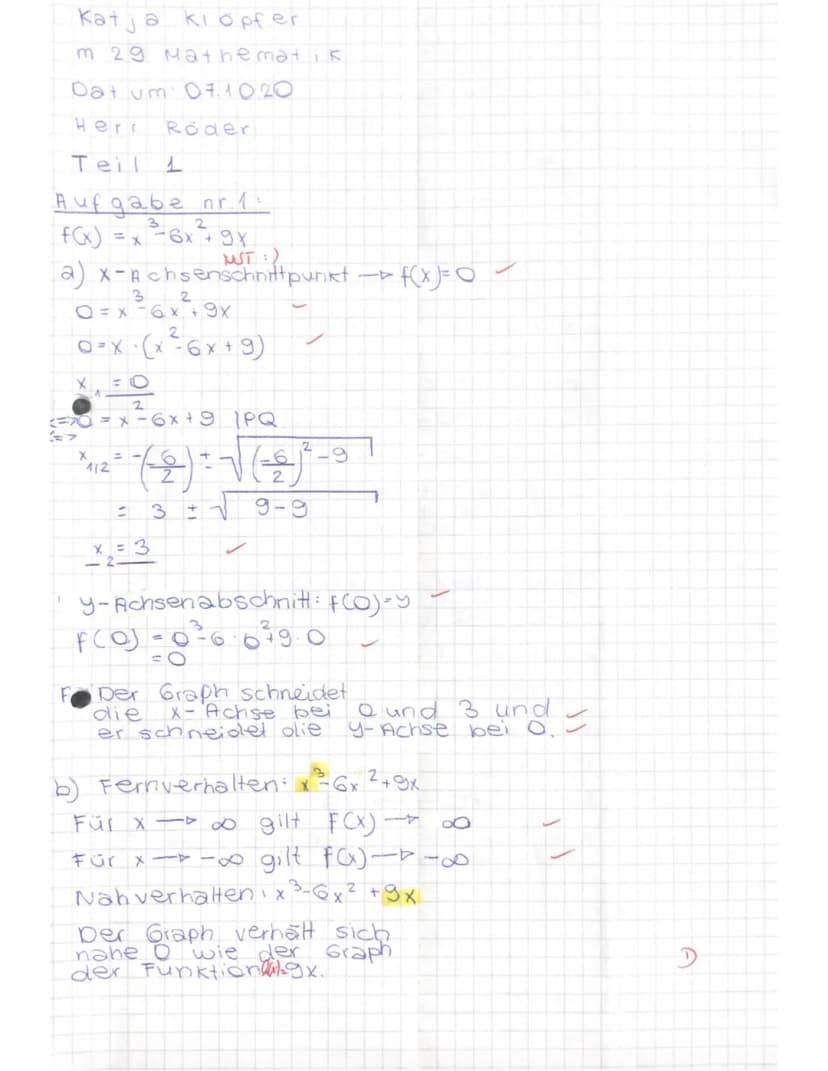 Katja Klöpfer
m 29 Mathematik
Datum: 07.10.20
Herr Röder
Teil 1
Aufgabe nr.1:
f(x) = x³-6x²+9x
NST :)
a) x-Achsenschnittpunkt → f(x)=0 ✓
0 = x³-6x²+9x ✓
0=x·(x²-6x+9) ✓
x₁ = 0
<=>0 = x²-6x+9 |PQ
<=>
x₁/₂ = -(-6/2) ± √((-6/2)²-9)
= 3 ± √(9-9)
x₂ = 3 ✓
y-Achsenabschnitt: f(0)=y ✓
f(0) = 0³-6·0²+9·0 ✓
= 0
F Der Graph schneidet
die x-Achse bei 0 und 3 und ✓
er schneidet die y-Achse bei 0. ✓
b) Fernverhalten: x³-6x²+9x
Für x → ∞ gilt f(x) → ∞ ✓
Für x → -∞ gilt f(x) → -∞ ✓
Nahverhalten: x³-6x²+9x
Der Graph verhält sich
nahe 0 wie der Graph
der Funktion 9x.